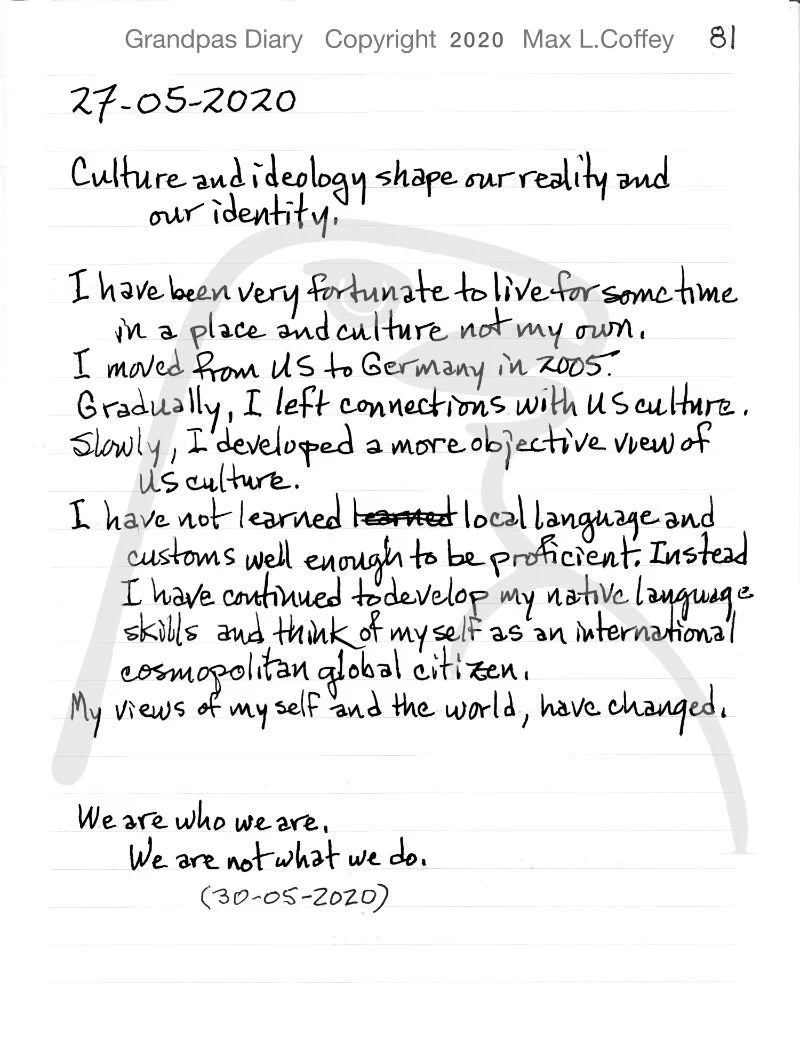 Grandpas Diary Copyright 2020 Max L.Coffey 81
27-05-2020
Culture and ideology shape our reality and
our identity.
I have been very fortunate to live for some time
in a place and culture not my own.
I moved from US to Germany in 2005.
Gradually, I left connections with US culture.
Slowly, I developed a more objective view of
US culture.
I have not learned learned local language and
customs well enough to be proficient. Instead
I have continued to develop my native language
skills and think of myself as an international
cosmopolitan global citizen.
My views of myself and the world, have changed.
We are who we are.
We are not what we do.
(30-05-2020)